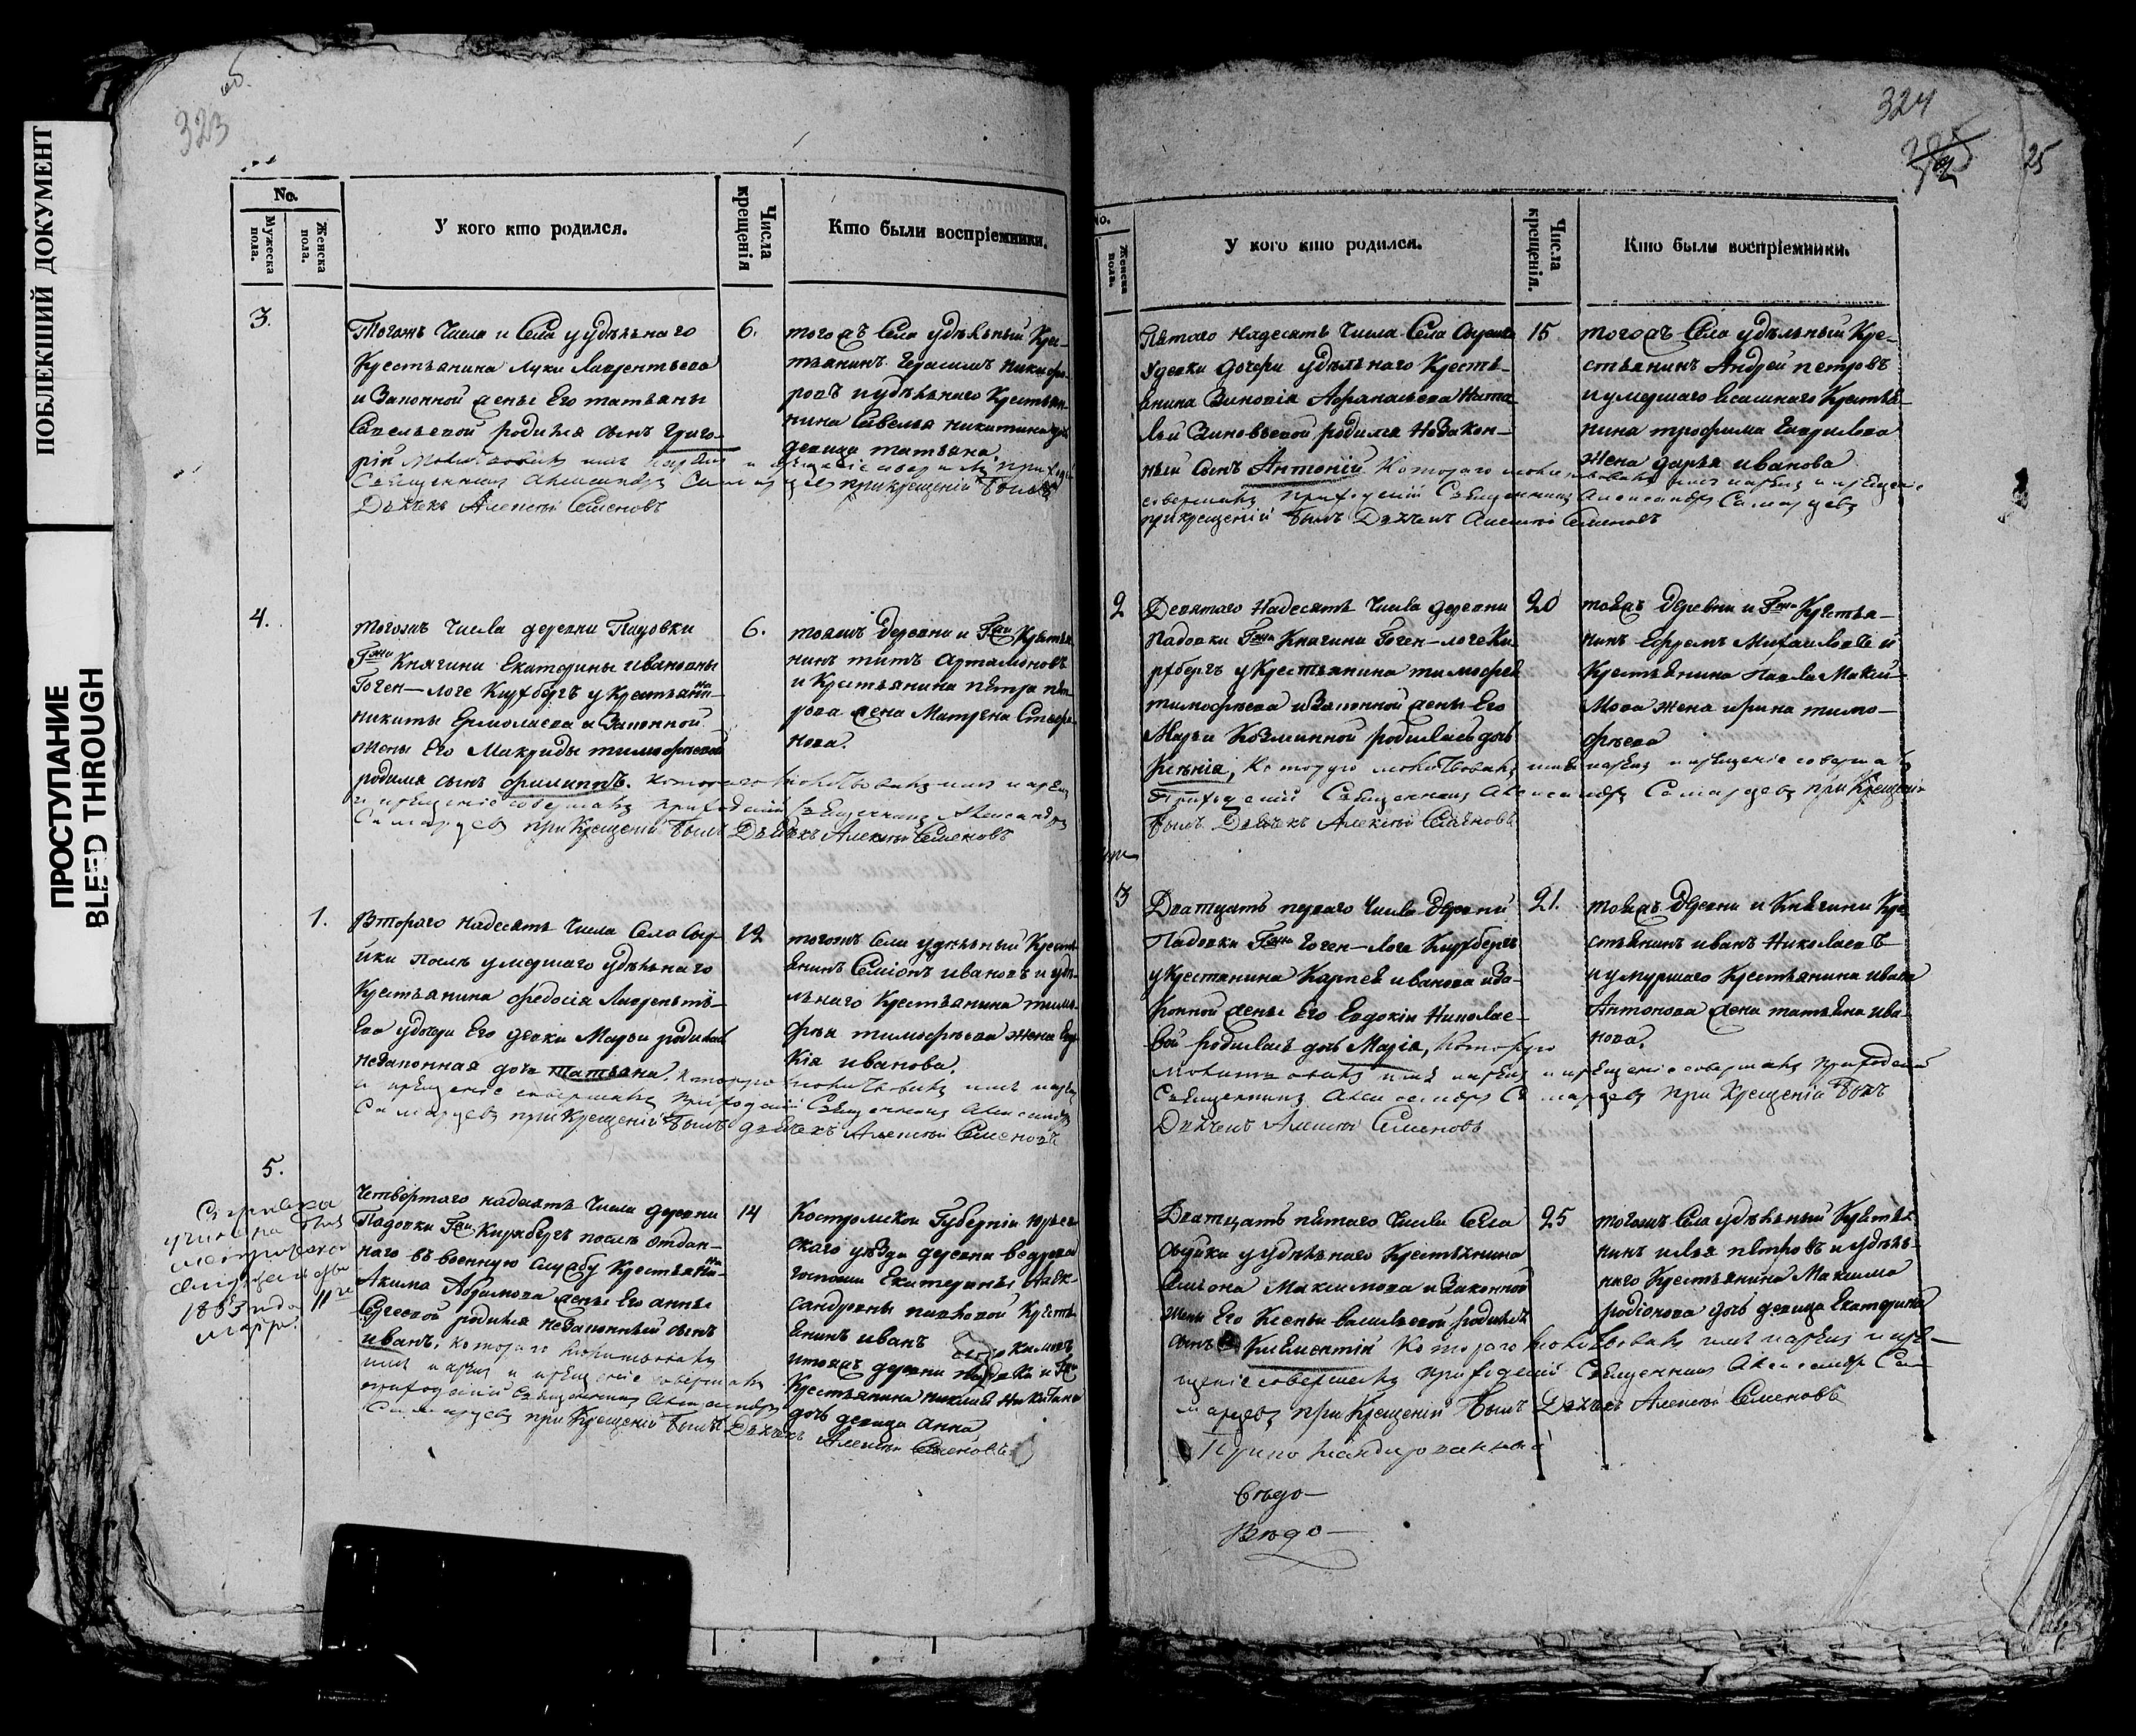 ПОБЛЕКШИЙ ДОКУМЕНТ
ПРОСТУПАНИЕ
BLEED THROUGH
323
об.
No.
Мужеска пола.
Женска пола.
У кого кто родился.
Числа крещенія
Кто были воспріемники.
3.
Тогожъ Числа и Села у удѣльнаго
Крестьянина Луки Лаврентьева
и Законной женѣ Его татьяны
Савельевой родился сынъ Григо-
рій
Священникъ Александръ при крещеніи былъ
Дьячекъ Алексѣй Семеновъ
6.
тогожъ Села удѣльный Кре-
тьянинъ Герасимъ Никифо-
ровъ и удѣльнаго Крестьян-
нина Савелья Никитина
девица татьяна.
4.
тогожъ Числа деревни Падовки
Гжи Княгини Екатерины Ивановны
Гоген-логе Кирхбергъ у Крестьяни-
на
Никиты Ермолаева и Законной
жены Его Макриды тимофѣевой
родился сынъ Филиппъ. Котораго молитвовалъ имя нарекъ
и крещеніе совершалъ приходскій Священникъ Александръ
при Крещеніи былъ Дьячекъ Алексѣй Семеновъ
6.
тояжъ Деревни и Гжи Кресть-
нинъ титъ Артамоновъ
и Крестьянина Петра Пет-
рова жена Матрена Степа-
нова.
1.
Втораго надесять Числа Села
послѣ умершаго удѣльнаго
Крестьянина Федосія Лаврентьі-
ева у дочери Его девки Марьи родилась
незаконная дочь татьяна. Которую молитвовалъ имя нарекъ
и крещеніе совершалъ приходскій Священникъ Александръ
при Крещеніи былъ дьячекъ Алексѣй Семеновъ
12
тогожъ Села удѣльный Кресть-
янинъ Семіонъ Ивановъ и удѣ-
льнаго Крестьянина тимо-
фѣя тимофѣева жена Евдо-
кія иванова.
5.
Справка
учинена
1863 года
11го
марта.
Четвертаго надесять Числа деревни
Падовки Гжи Кирхбергъ послѣ отдан-
наго въ военную Службу Крестьяни-
на
Акима Абрамова женѣ Его Анны
родился незаконный сынъ
иванъ. Котораго молитвовалъ
имя нарекъ и крещеніе совершалъ
приходскій Священникъ Александръ
при Крещеніи былъ Дьячекъ Алексѣй Семеновъ
14
Костромской Губерніи Юрьев-
скаго уѣзда деревни
госпожи Екатерины Алек-
сандровны Крестья-
янинъ иванъ
и тояжъ деревни Падовки и Гжи
Крестьянина Никиты
дочь девица Анна
324
25
No.
Женска пола.
У кого кто родился.
Числа крещенія.
Кто были воспріемники.
Пятаго надесять Числа Села
У девки дочери удѣльнаго Кресть-
янина Зиновія Афанасьева Ната-
льи Зиновьевой родился Незакон-
ный сынъ Антоній Котораго молитвовалъ имя нарекъ и крещеніе
совершалъ приходскій Священникъ Александръ
при крещеніи былъ Дьячекъ Алексѣй Семеновъ
15.
тогожъ Села удѣльный Кре-
стьянинъ Андрей петровъ
и умершаго Крестья-
нина трофима Гаврилова
жена дарья иванова
2
Девятаго Надесять Числа деревни
Падовки Гжи Княгини Гоген-логе Ки-
рхбергъ у Крестьянина тимофея
тимофѣева и Законной жены Его
Марьи Козминной родилась дочь
Ксенія, Которую молитвовалъ имя нарекъ и крещеніе совершалъ
Приходскій Священникъ Александръ при Крещеніи
былъ Дьячекъ Алексѣй Семеновъ
20
тояжъ Деревни и Гжи Крестья-
нинъ Ефремъ Михаиловъ и
Крестьянина Павла Макси-
мова жена ирина тимо-
фѣева
3
Дватцать перваго Числа Деревни
Падовки Гжи Гоген-Логе Кирхбергъ
у Крестьянина Карпея иванова и За-
конной женѣ Его Евдокіи Николае-
вой родилась дочь Марія, Которую
молитвовалъ имя нарекъ и крещеніе совершалъ приходскій
Священникъ Александръ при Крещеніи былъ
Дьячекъ Алексѣй Семеновъ
21.
тояжъ Деревни и Княгини Кре-
стьянинъ иванъ Николаевъ
и умершаго Крестьянина ивана
Антонова жена татьяна ива-
нова.
Дватцать пятаго Числа Села
у удѣльнаго Крестьянина
Семіона Максимова и Законной
жены Его Ксеньи Васильевой родился
сынъ Климентій Котораго молитвовалъ имя нарекъ и кре-
щеніе совершалъ приходскій Священникъ Александръ
при Крещеніи былъ Дьячекъ Алексѣй Семеновъ
25
тогожъ Села удѣльный Крестья-
нинъ илья петровъ и удѣль-
наго Крестьянина Максима
родіонова дочь девица Екатерина